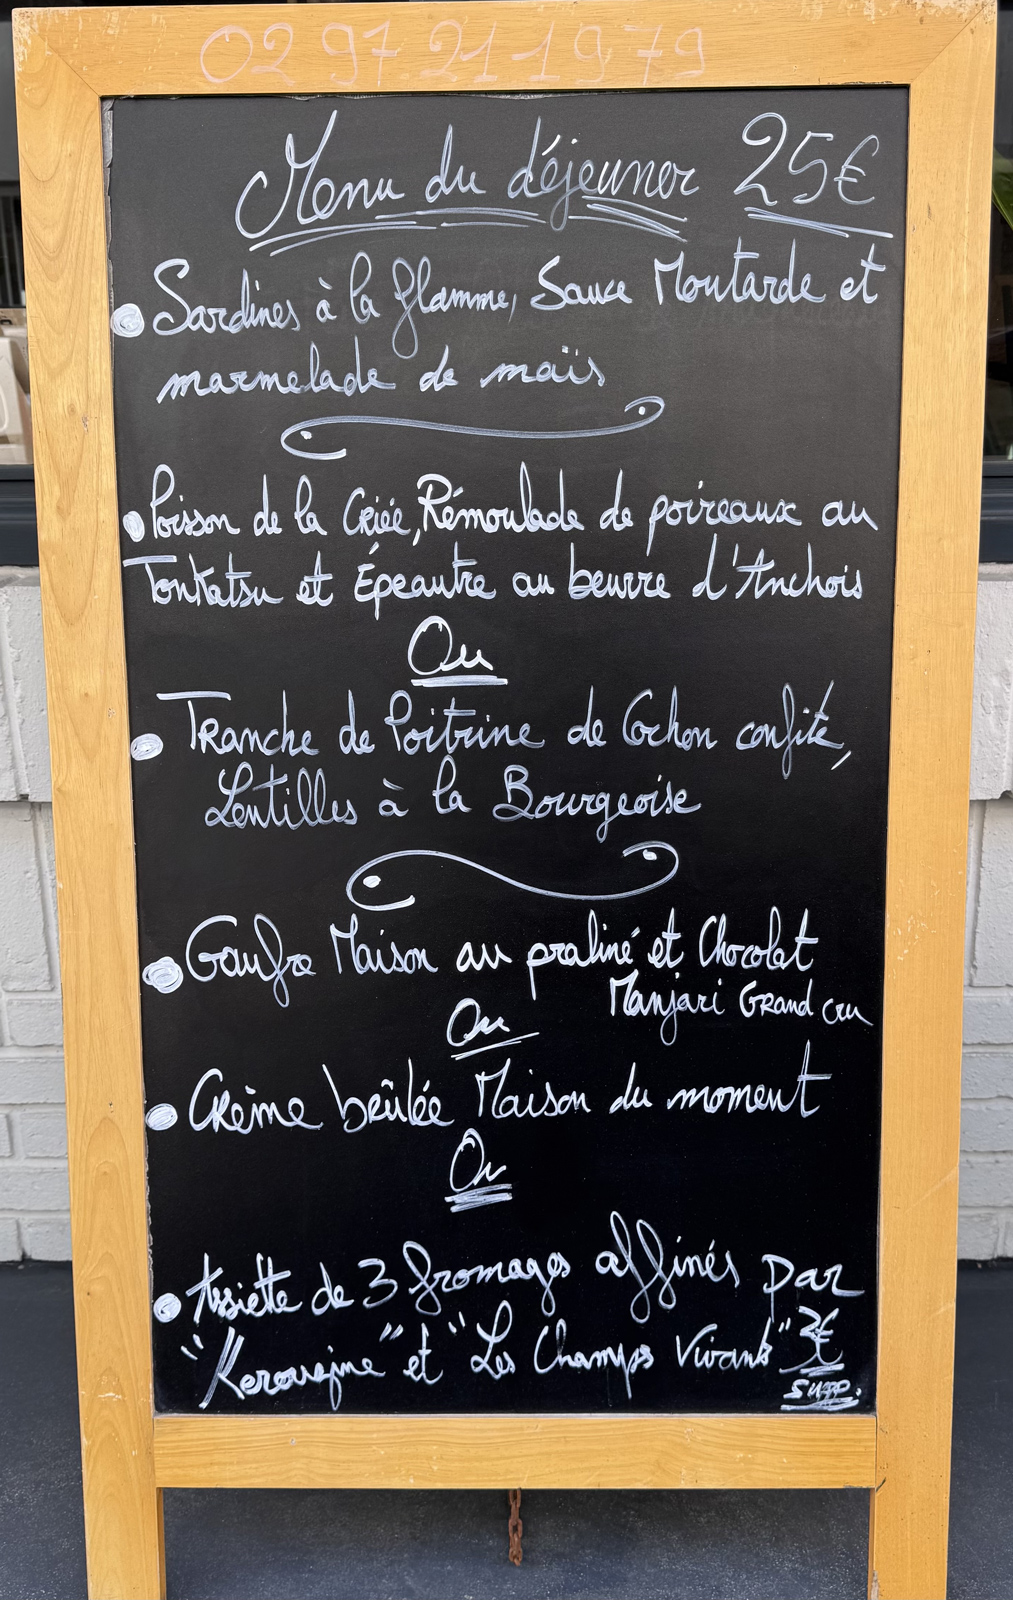 02 97 21 19 79
Menu du déjeuner 25€
Sardines à la flamme, Sauce Moutarde et
marmelade de maïs
Poisson de la Criée, Rémoulade de poireaux au
Tonkatsu et Épeautre au beurre d'Anchois
Ou
Tranche de Poitrine de Cochon confite,
Lentilles à la Bourgeoise
Gaufre Maison au praliné et Chocolat
Manjari Grand cru
Ou
Crème brûlée Maison du moment
Ou
Assiette de 3 fromages affinés par
"Kerouzine" et "Les Champs Vivants" 3€
supp.